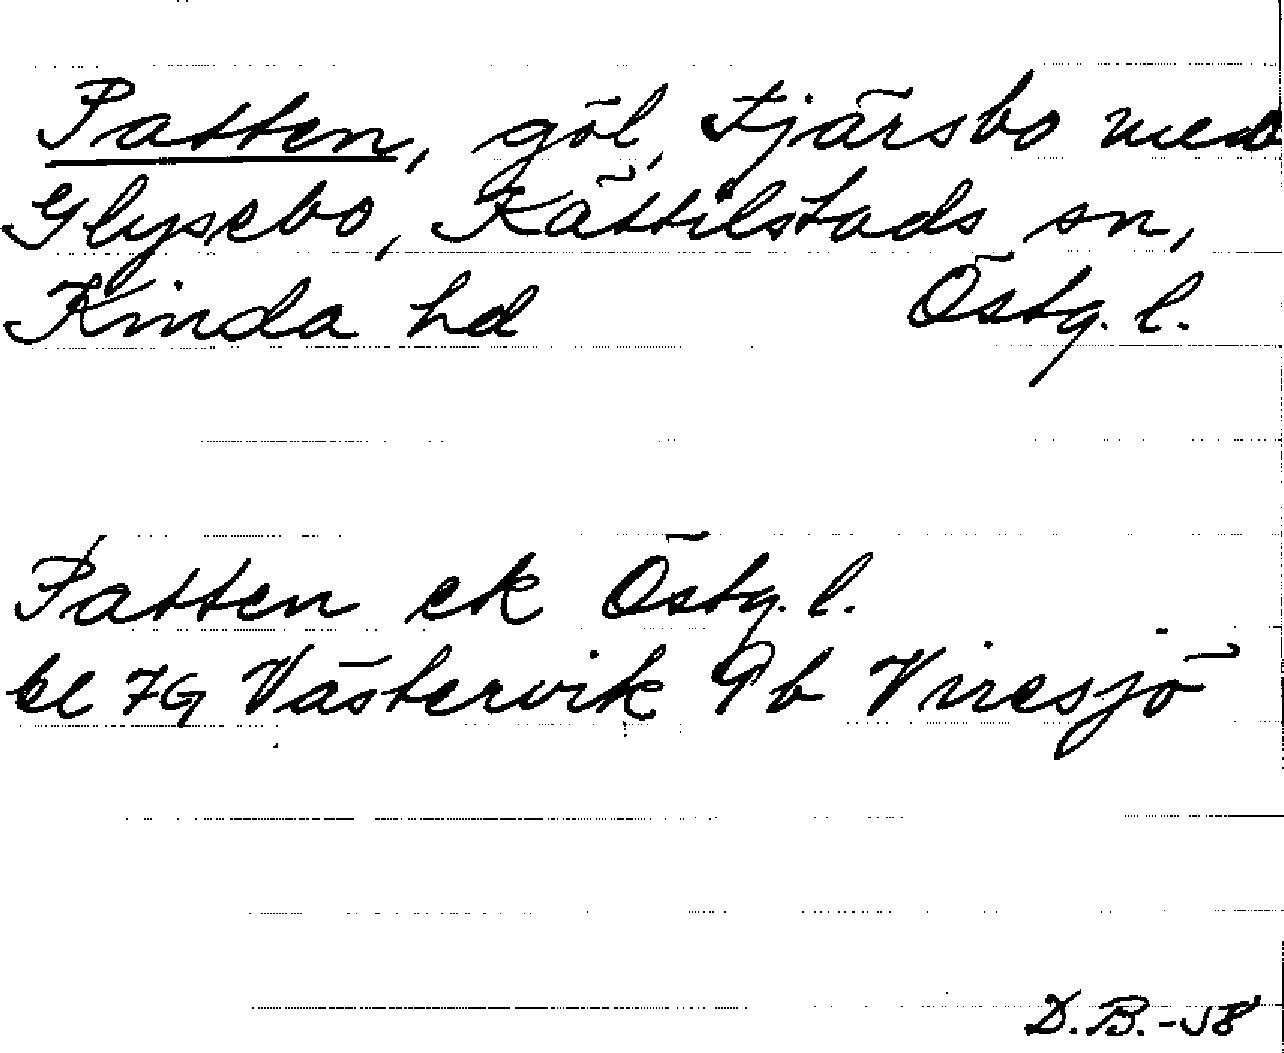 Patten, göl, Fjärsbo med
Glysebo, Kättilstads sn,
Kinda hd Östg. l.
Patten ek Östg. l.
bl 7G Västervik 9b Viresjö
D.B.-58